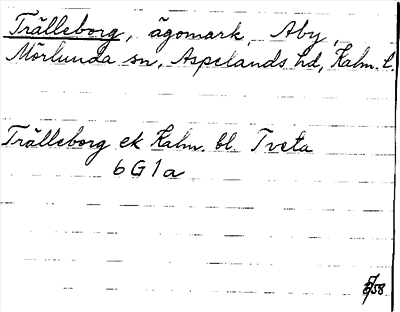 Trälleborg, ägomark, Åby,
Mörlunda sn, Aspelands hd, Kalm. l.
Trälleborg ek Kalm. bl. Tveta
6G1a
58